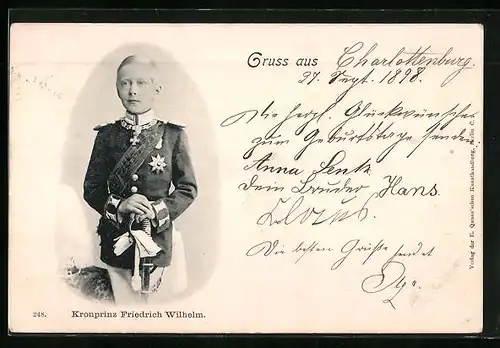 Gruss aus Charlottenburg.
27. Sept. 1898.
Die herzl. Glückwünsche
zum Geburtstage senden
Anna
Dein Bruder Hans.
Die besten Grüsse sendet
Olga.
248. Kronprinz Friedrich Wilhelm.
Verlag der E. Kunsthandlung, Berlin C.